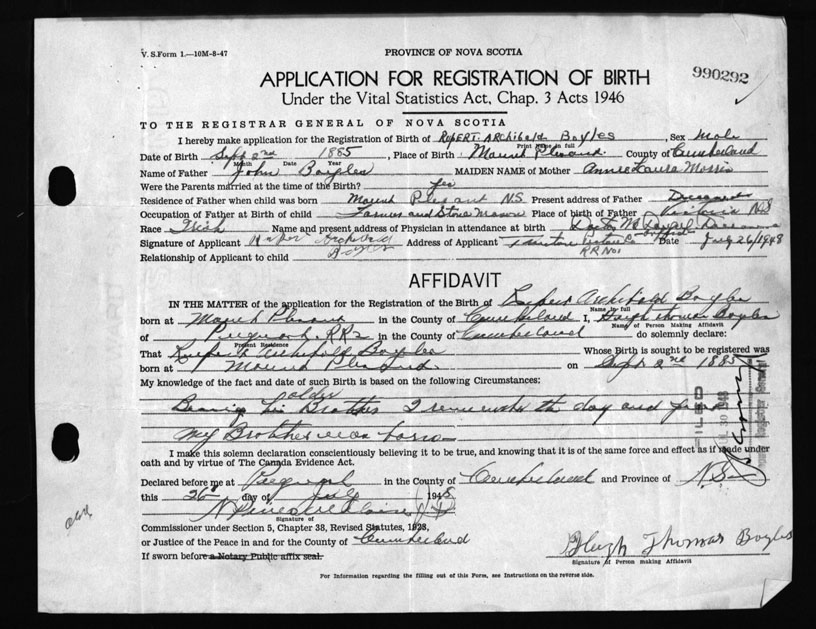 V. S. Form 1.—10M-8-47
PROVINCE OF NOVA SCOTIA
990292
APPLICATION FOR REGISTRATION OF BIRTH
Under the Vital Statistics Act, Chap. 3 Acts 1946
TO THE REGISTRAR GENERAL OF NOVA SCOTIA
I hereby make application for the Registration of Birth of Rupert Archibald Boyles, Sex Male
Print Name in full
Date of Birth Sept 2nd 1885, Place of Birth Mount Pleasant County of Cumberland
Month Date Year
Name of Father John Boyles MAIDEN NAME of Mother Annie Laura Morris
Were the Parents married at the time of the Birth? Yes
Residence of Father when child was born Mount Plesant NS Present address of Father Deceased
Occupation of Father at Birth of child Farmer and Stone Mason Place of birth of Father Victoria NS
Race Irish Name and present address of Physician in attendance at birth
Signature of Applicant Archibald Boyles Address of Applicant Date July 26/1948
RR No 1
Relationship of Applicant to child
AFFIDAVIT
IN THE MATTER of the application for the Registration of the Birth of Rupert Archibald Boyles
Name in full
born at Mount Plesant in the County of Cumberland I, Hugh Thomas Boyles
Name of Person Making Affidavit
of Pugwash RR2 in the County of Cumberland do solemnly declare:
Present Residence
That Rupert Archibald Boyles Whose Birth is sought to be registered was
born at Mount Plesant on Sept 2nd 1885
My knowledge of the fact and date of such Birth is based on the following Circumstances:
older
Beaing his Brother I remember the day and year
My Brother was born
FILED
JUL 30 1948
Registrar General
I make this solemn declaration conscientiously believing it to be true, and knowing that it is of the same force and effect as if made under
oath and by virtue of The Canada Evidence Act.
Declared before me at Pugwash in the County of Cumberland and Province of N.S.
this 26 day of July 1948
J P
Signature of
Commissioner under Section 5, Chapter 38, Revised Statutes, 1923,
or Justice of the Peace in and for the County of Cumberland
If sworn before a Notary Public affix seal.
Hugh Thomas Boyles
Signature of Person making Affidavit
For Information regarding the filling out of this Form, see Instructions on the reverse side.